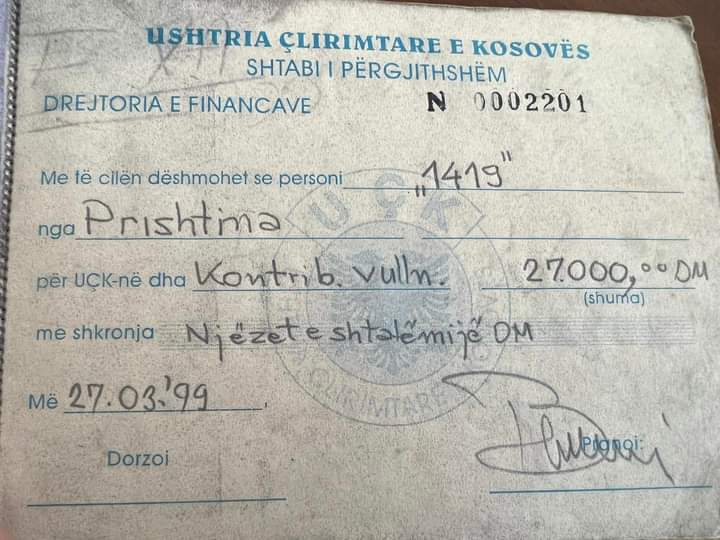 USHTRIA ÇLIRIMTARE E KOSOVËS
SHTABI I PËRGJITHSHËM
DREJTORIA E FINANCAVE N 0002201
Me të cilën dëshmohet se personi „1419"
nga Prishtina
për UÇK-në dha Kontrib. vulln. 27.000,00 DM
(shuma)
me shkronja Njëzet e shtatëmijë DM
Më 27.03.'99
Dorzoi Pranoi:
UÇK
ÇLIRIMTARE